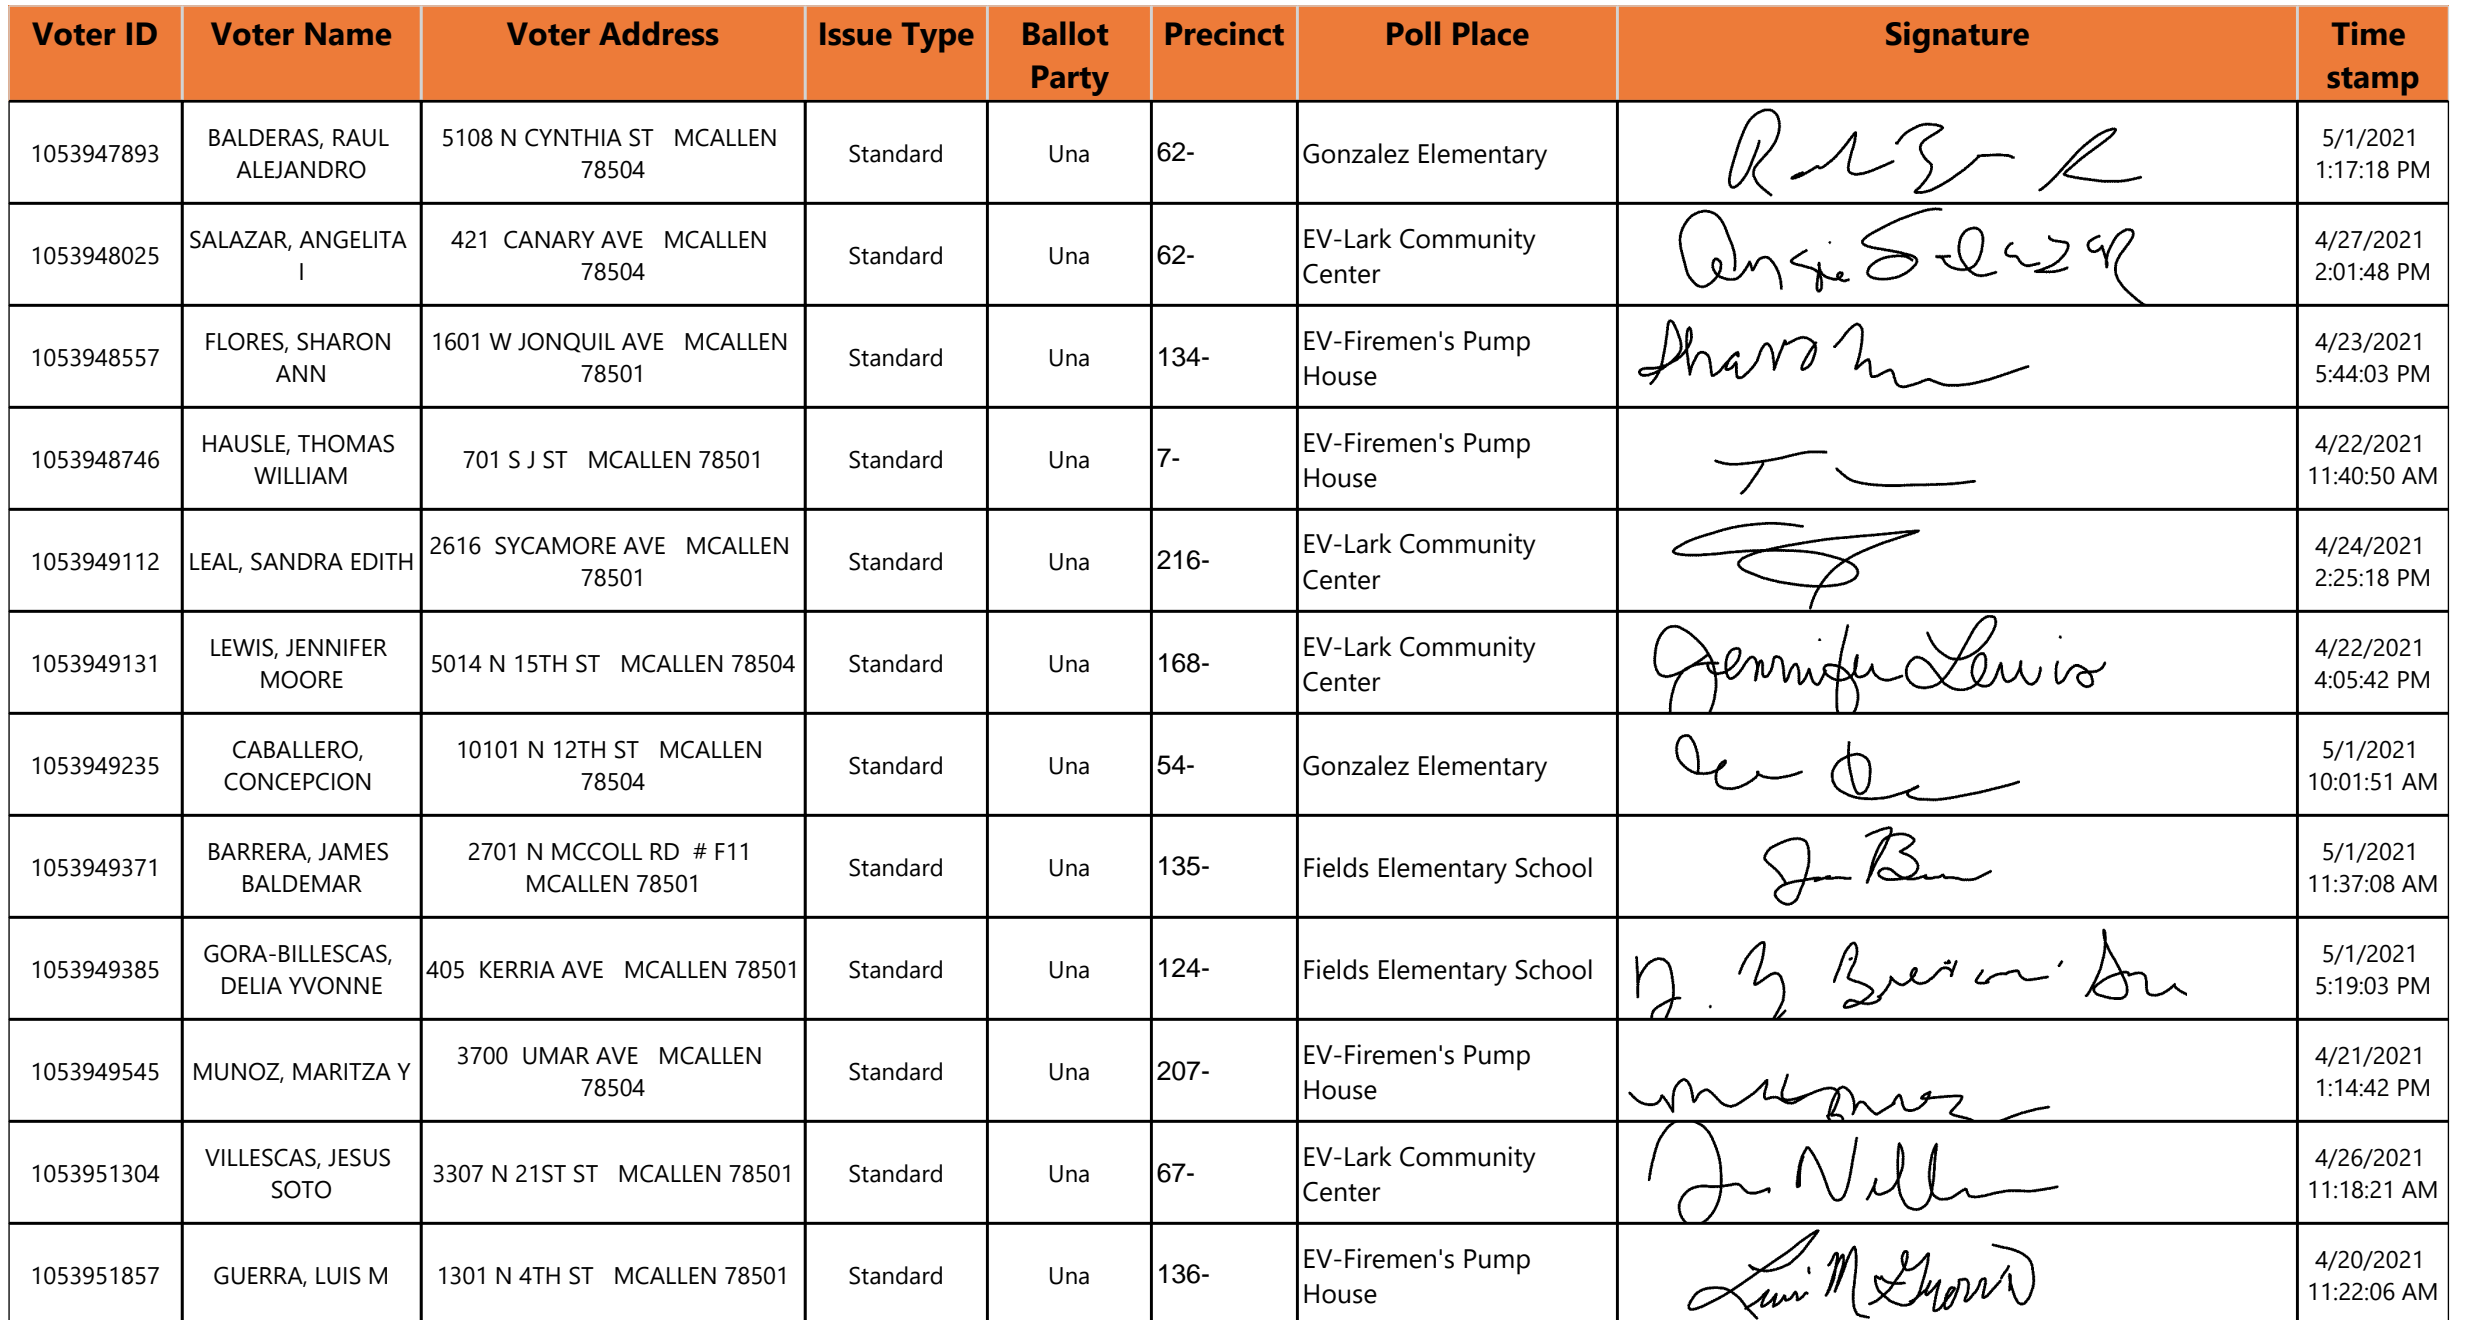 Voter ID Voter Name Voter Address Issue Type Ballot Party Precinct Poll Place Signature Time stamp
1053947893 BALDERAS, RAUL ALEJANDRO 5108 N CYNTHIA ST MCALLEN 78504 Standard Una 62- Gonzalez Elementary 5/1/2021 1:17:18 PM
1053948025 SALAZAR, ANGELITA I 421 CANARY AVE MCALLEN 78504 Standard Una 62- EV-Lark Community Center Angie Salazar 4/27/2021 2:01:48 PM
1053948557 FLORES, SHARON ANN 1601 W JONQUIL AVE MCALLEN 78501 Standard Una 134- EV-Firemen's Pump House Sharon 4/23/2021 5:44:03 PM
1053948746 HAUSLE, THOMAS WILLIAM 701 S J ST MCALLEN 78501 Standard Una 7- EV-Firemen's Pump House 4/22/2021 11:40:50 AM
1053949112 LEAL, SANDRA EDITH 2616 SYCAMORE AVE MCALLEN 78501 Standard Una 216- EV-Lark Community Center 4/24/2021 2:25:18 PM
1053949131 LEWIS, JENNIFER MOORE 5014 N 15TH ST MCALLEN 78504 Standard Una 168- EV-Lark Community Center Jennifer Lewis 4/22/2021 4:05:42 PM
1053949235 CABALLERO, CONCEPCION 10101 N 12TH ST MCALLEN 78504 Standard Una 54- Gonzalez Elementary 5/1/2021 10:01:51 AM
1053949371 BARRERA, JAMES BALDEMAR 2701 N MCCOLL RD # F11 MCALLEN 78501 Standard Una 135- Fields Elementary School 5/1/2021 11:37:08 AM
1053949385 GORA-BILLESCAS, DELIA YVONNE 405 KERRIA AVE MCALLEN 78501 Standard Una 124- Fields Elementary School 5/1/2021 5:19:03 PM
1053949545 MUNOZ, MARITZA Y 3700 UMAR AVE MCALLEN 78504 Standard Una 207- EV-Firemen's Pump House 4/21/2021 1:14:42 PM
1053951304 VILLESCAS, JESUS SOTO 3307 N 21ST ST MCALLEN 78501 Standard Una 67- EV-Lark Community Center 4/26/2021 11:18:21 AM
1053951857 GUERRA, LUIS M 1301 N 4TH ST MCALLEN 78501 Standard Una 136- EV-Firemen's Pump House Luis M Guerra 4/20/2021 11:22:06 AM